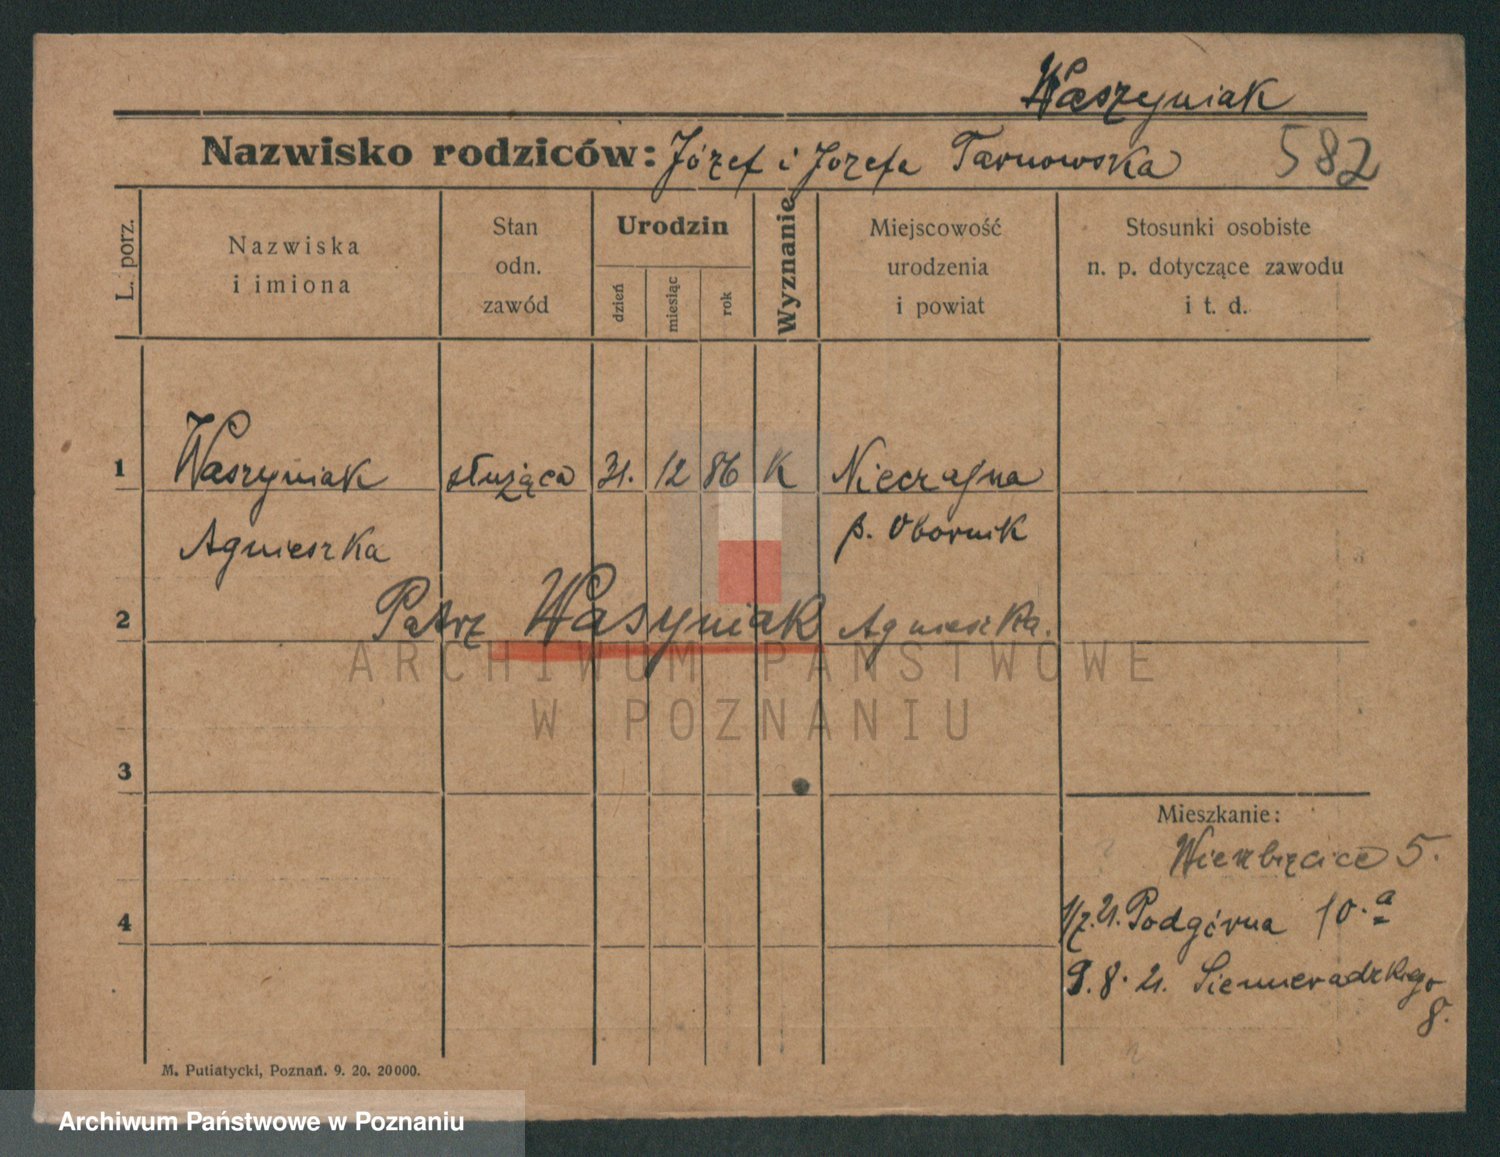 Waszyniak
Nazwisko rodziców: Józef i Józefa Tarnowska 582
L. porz.
Nazwiska
i imiona
Stan
odn.
zawód
Urodzin
dzień
miesiąc
rok
Wyznanie
Miejscowość
urodzenia
i powiat
Stosunki osobiste
n. p. dotyczące zawodu
i t. d.
1 Waszyniak służąca 31. 12 86 K Nieczajna
Agnieszka p. Obornik
2 Patrz Wasyniak Agnieszka.
ARCHIWUM PAŃSTWOWE
W POZNANIU
3
Mieszkanie:
Wierzbięcice 5.
4 1/7. 21. Podgórna 10.a
9.8. 21. Siemieradzkiego
8.
M. Putiatycki, Poznań. 9. 20. 20000.
Archiwum Państwowe w Poznaniu